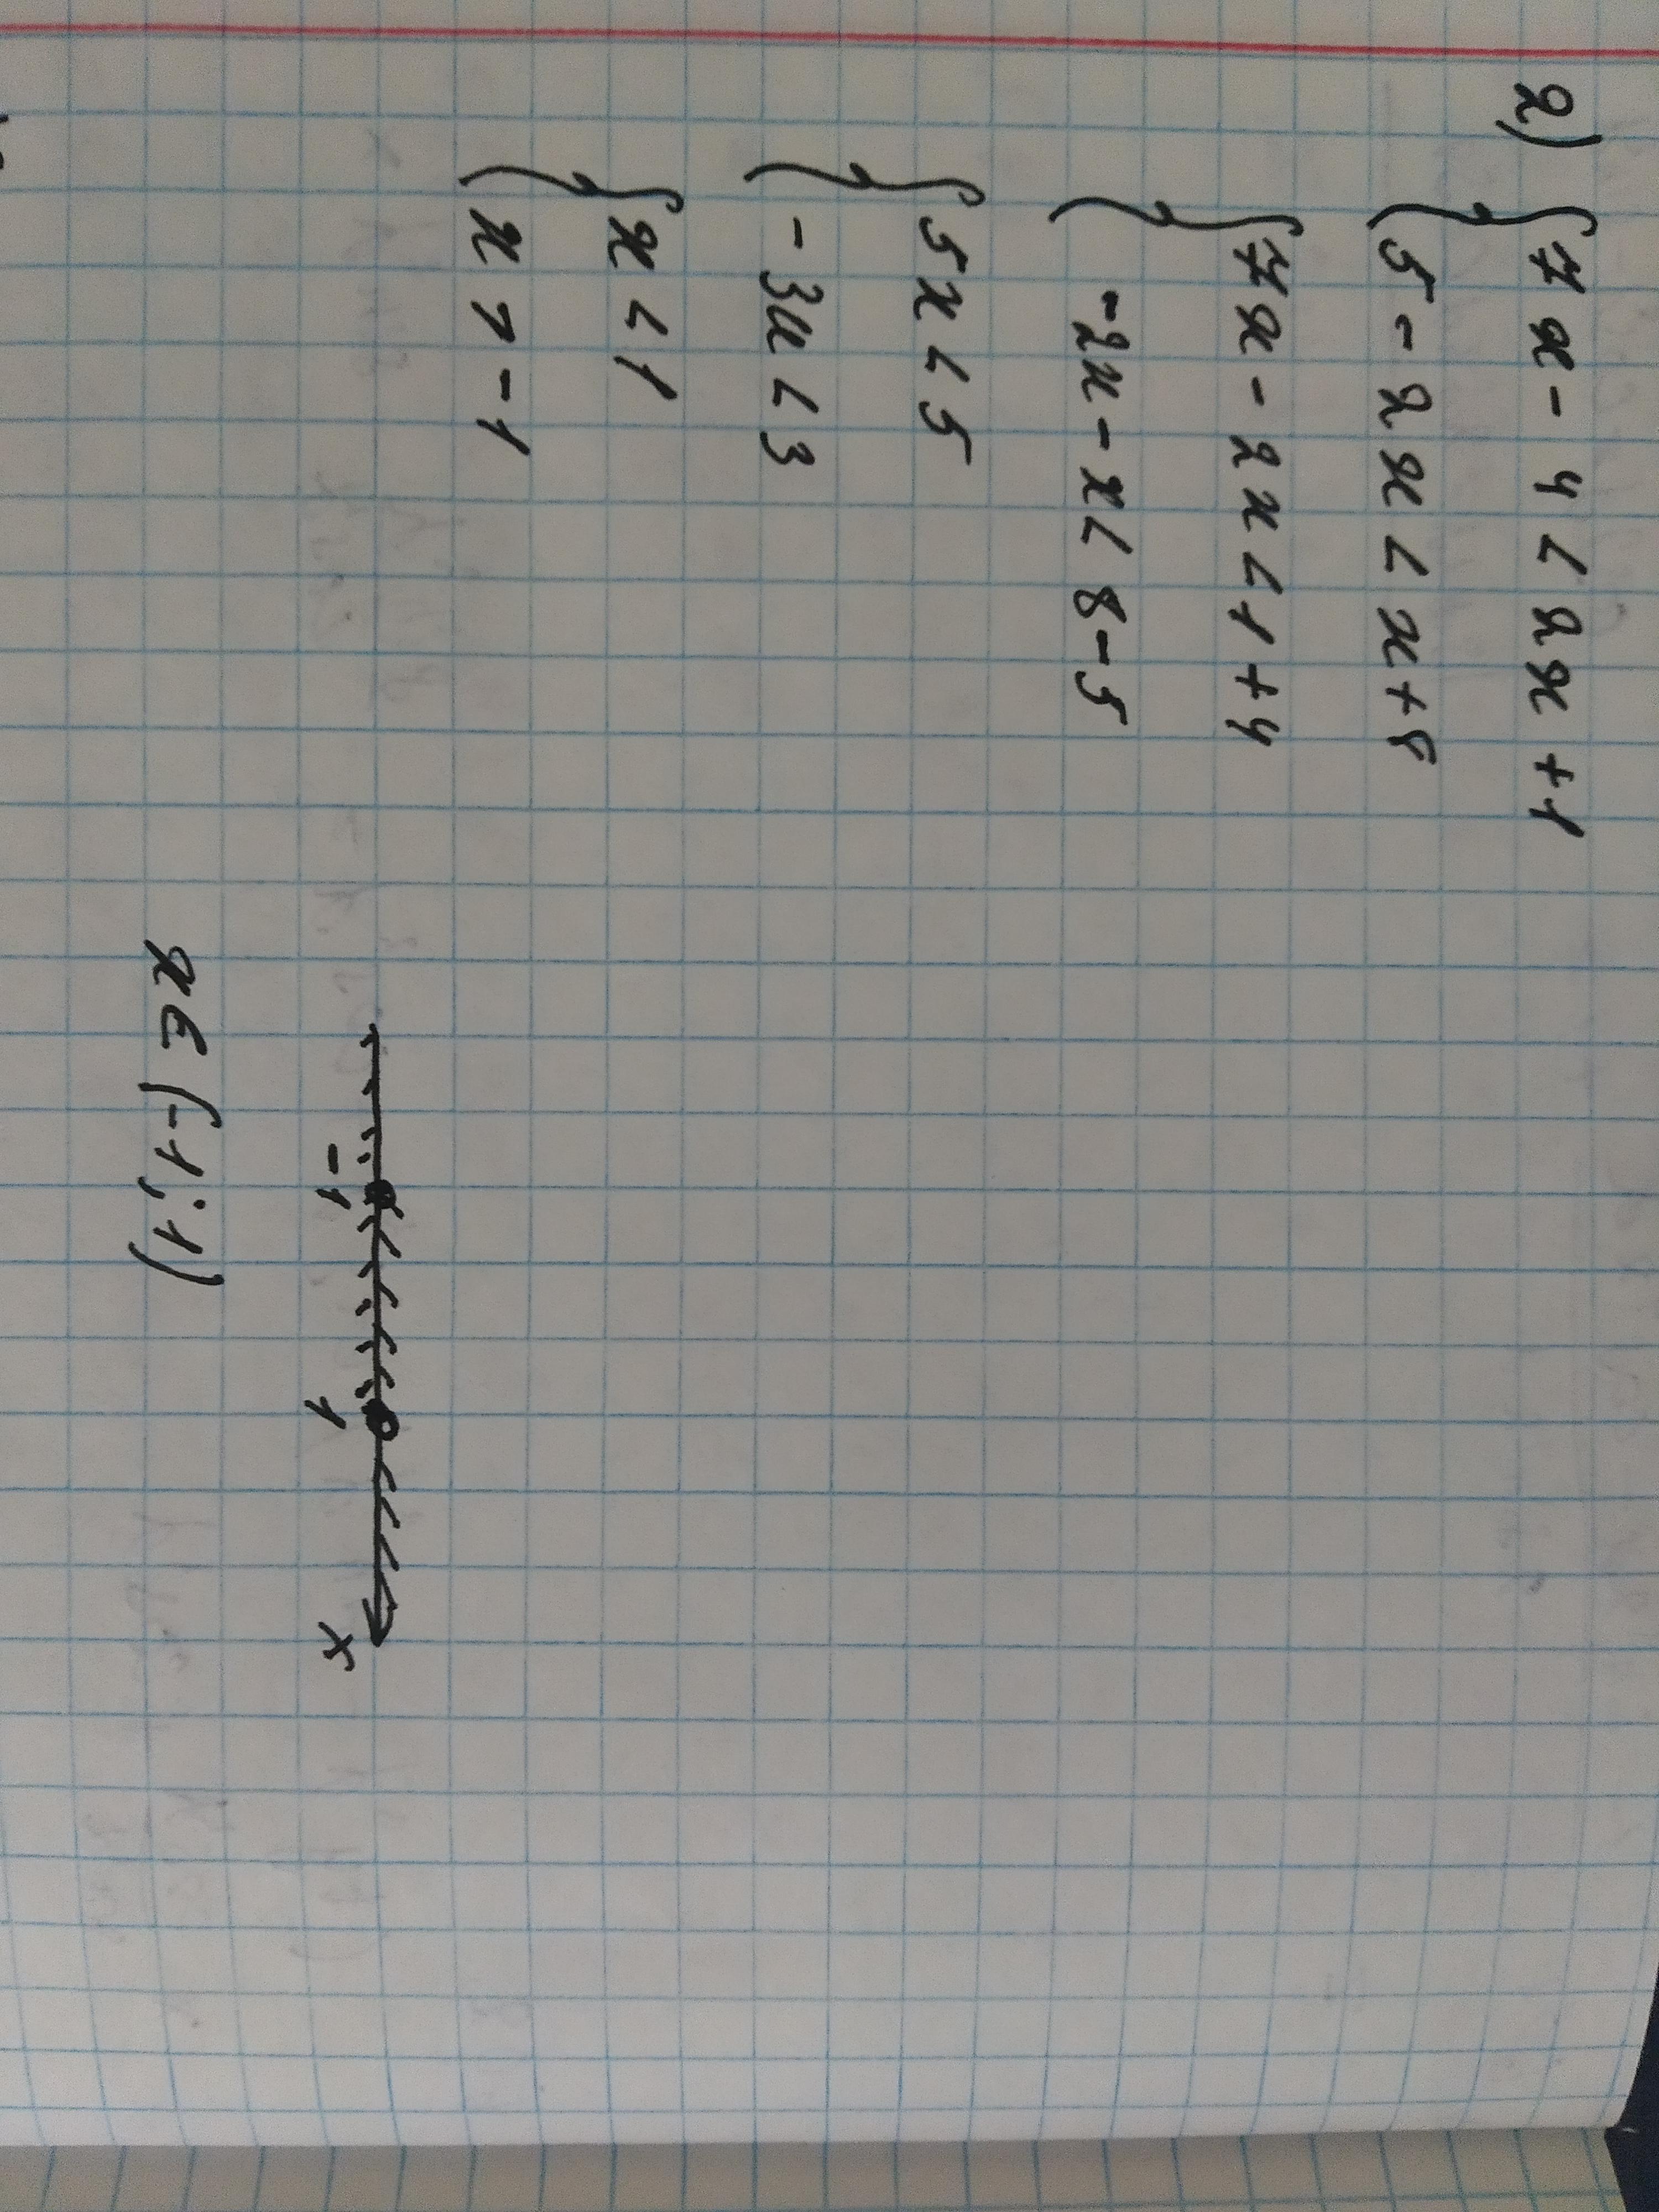 2) { 7x - 4 < 2x + 1
5 - 2x < x + 8
{ 7x - 2x < 1 + 4
-2x - x < 8 - 5
{ 5x < 5
- 3x < 3
{ x < 1
x > -1
-1 1 x
x ∈ (-1; 1)